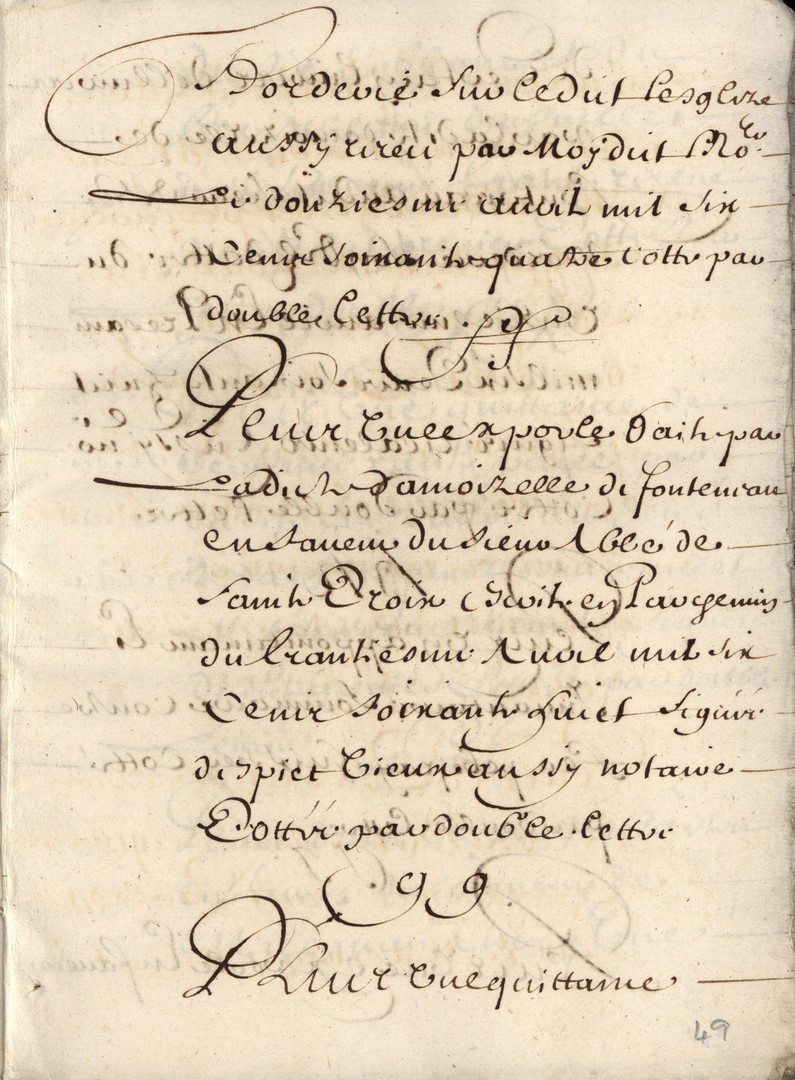 Bordevie sur ledit Lesglize
aussy receu par Moydit No.re
Le douziesme auril mil six
Cents soixante quatre Cotte par
double Lettre. ff
Plus Une exporle faite par
Ladicte damoizelle de fonteneau
en faueur du sieur Abbé de
Sainte Croix escrite en Parchemin
du trantiesme Auril mil six
Cents soixante huict signée
despiet vieux aussy notaire
Cottée par double lettre
gg.
Plus Une quittance
49